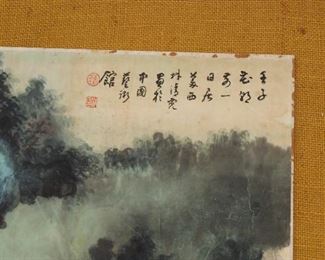 壬子
花朝
前一
日居
美西
林清霓
畫於
中國
藝術
館